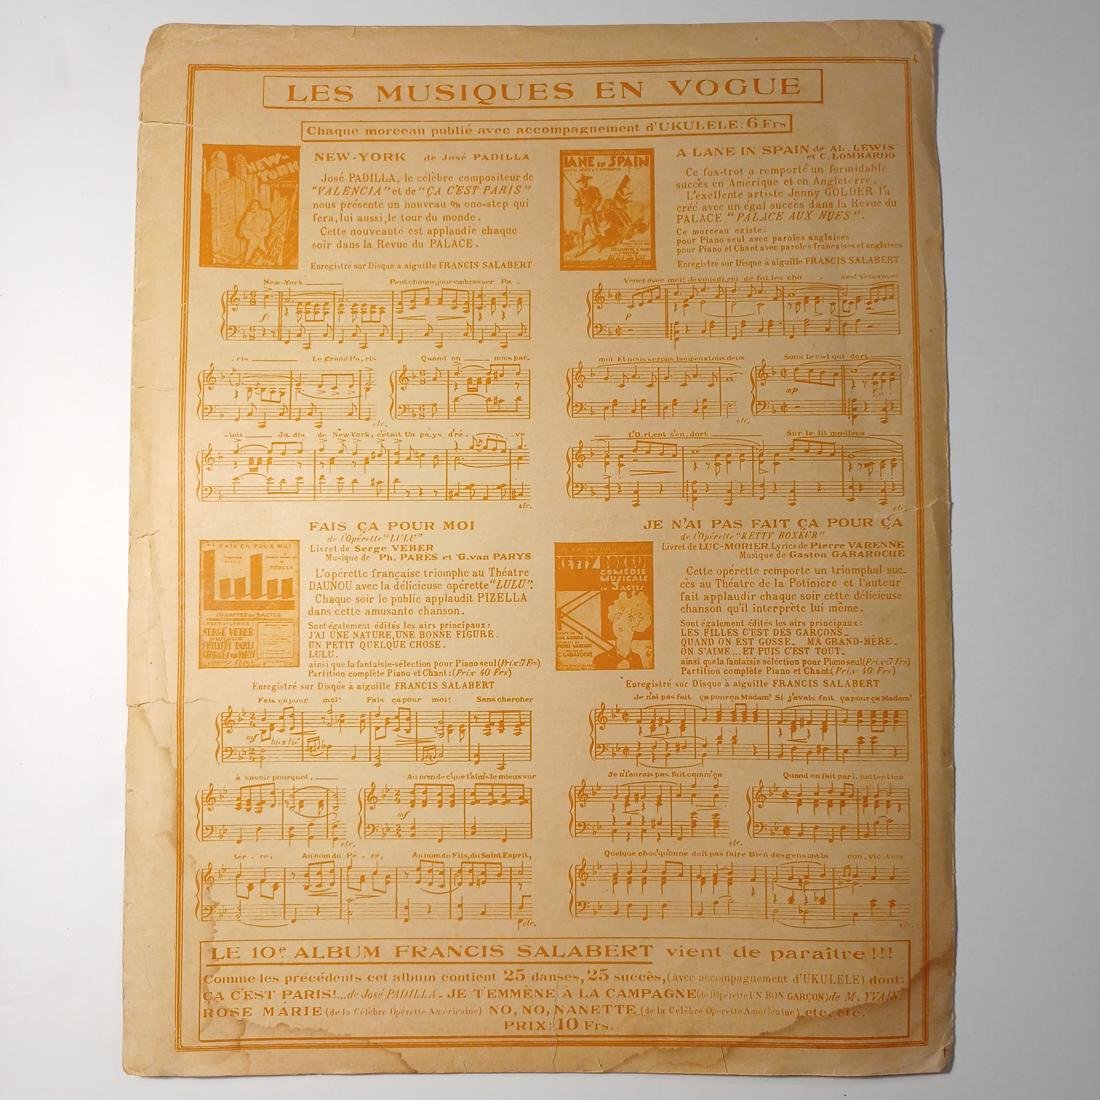 LES MUSIQUES EN VOGUE
Chaque morceau publié avec accompagnement d'UKULELE: 6 Frs
NEW-YORK de José PADILLA
José PADILLA, le célèbre compositeur de
"VALENCIA" et de "ÇA C'EST PARIS"
nous présente un nouveau 6/8 one-step qui
fera, lui aussi, le tour du monde.
Cette nouveauté est applaudie chaque
soir dans la Revue du PALACE.
Enregistré sur Disque à aiguille FRANCIS SALABERT
NEW-YORK
New-York Peut chaque jour embrasser Pa-
ris Le grand Paris Quand on nous par-
etc.
lait Jadis de New-York, c'était Un pays d'rê-ve
etc.
A LANE IN SPAIN de AL. LEWIS
et C. LOMBARDO
Ce fox-trot a remporté un formidable
succès en Amérique et en Angleterre.
L'exellente artiste Jenny GOLDER l'a
créé avec un égal succès dans la Revue du
PALACE "PALACE AUX NUES".
Ce morceau existe:
pour Piano seul avec paroles anglaises
pour Piano et Chant avec paroles françaises et anglaises
Enregistré sur Disque à aiguille FRANCIS SALABERT
LANE in SPAIN
Venez avec moi! Je vous dirai de folles cho-ses! Venez avec
moi Et nous serons heureux tous deux Sous le ciel qui dort
etc.
L'Orient s'en dort Sur le lit moelleux
etc.
FAIS ÇA POUR MOI
de l'Opérette "LULU"
Livret de Serge VEBER
Musique de Ph. PARES et G. van PARYS
L'opérette française triomphe au Théâtre
DAUNOU avec la délicieuse opérette "LULU".
Chaque soir le public applaudit PIZELLA
dans cette amusante chanson.
Sont également édités les airs principaux:
J'AI UNE NATURE, UNE BONNE FIGURE.
UN PETIT QUELQUE CHOSE.
LULU.
ainsi que la fantaisie-sélection pour Piano seul (Prix: 7 Frs)
Partition complète Piano et Chant: (Prix 40 Frs)
Enregistré sur Disque à aiguille FRANCIS SALABERT
FAIS ÇA POUR MOI
PIZELLA
SERGE VEBER
Fais ça pour moi! Fais ça pour moi! Sans chercher
mf bien lié
à savoir pourquoi, Au nom de c'que t'aim's le mieux sur
etc.
ter-re, Au nom du Pè-re, Au nom du Fils, du Saint Esprit,
etc.
JE N'AI PAS FAIT ÇA POUR ÇA
de l'Opérette "KETTY BOXEUR"
Livret de LUC-MORIER. Lyrics de Pierre VARENNE
Musique de Gaston GABAROCHE
Cette opérette remporte un triomphal suc-
cès au Théâtre de la Potinière et l'auteur
fait applaudir chaque soir cette délicieuse
chanson qu'il interprète lui même.
Sont également édités les airs principaux:
LES FILLES C'EST DES GARÇONS.
QUAND ON EST GOSSE. MA GRAND-MÈRE.
ON S'AIME... ET PUIS C'EST TOUT.
ainsi que la fantaisie sélection pour Piano seul (Prix: 7 Frs)
Partition complète Piano et Chant: (Prix 40 Frs)
Enregistré sur Disque à aiguille FRANCIS SALABERT
KETTY BOXEUR
COMÉDIE
MUSICALE
3 ACTES
Je n'ai pas fait ça pour ça Madam' Si j'avais fait ça pour ça Madam'
Je n'l'aurais pas fait comm'ça Quand on fait par inattention
etc.
Quelque chos' qu'on ne doit pas faire Bien des gens ont la conviction
etc.
LE 10e ALBUM FRANCIS SALABERT vient de paraître!!!
Comme les précédents cet album contient 25 danses, 25 succès, (avec accompagnement d'UKULELE) dont:
ÇA C'EST PARIS!... de José PADILLA - JE T'EMMÈNE À LA CAMPAGNE (de l'Opérette UN BON GARÇON) de M. YVAIN
ROSE MARIE (de la Célèbre Opérette Américaine) NO, NO, NANETTE (de la Célèbre Opérette Américaine) etc. etc.
PRIX: 10 Frs.